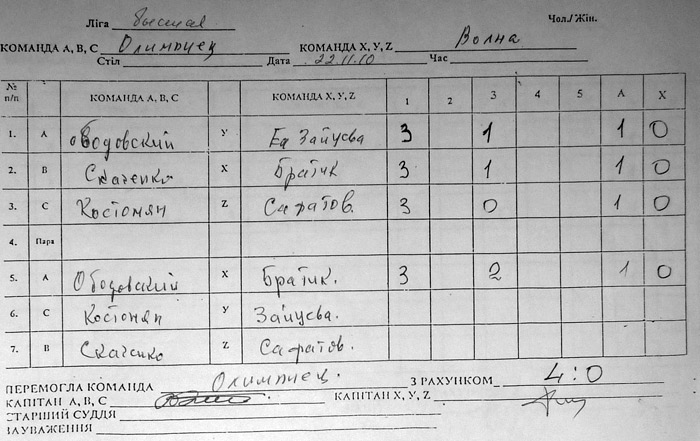 Ліга Высшая Чол./Жін.
КОМАНДА А, В, С Олимпиец КОМАНДА X, Y, Z Волна
Стіл Дата 22.11.10 Час
№ п/п КОМАНДА А, В, С КОМАНДА X, Y, Z 1 2 3 4 5 А X
1. А Ободовский У Зайцева 3 1 1 0
2. В Скаченко X Братик 3 1 1 0
3. С Костомян Z Саратов. 3 0 1 0
4. Пара
5. А Ободовский X Братик. 3 2 1 0
6. С Костомян У Зайцева.
7. В Скаченко Z Саратов.
ПЕРЕМОГЛА КОМАНДА Олимпиец. З РАХУНКОМ 4:0
КАПІТАН А, В, С КАПІТАН X, Y, Z
СТАРШИЙ СУДДЯ
ЗАУВАЖЕННЯ